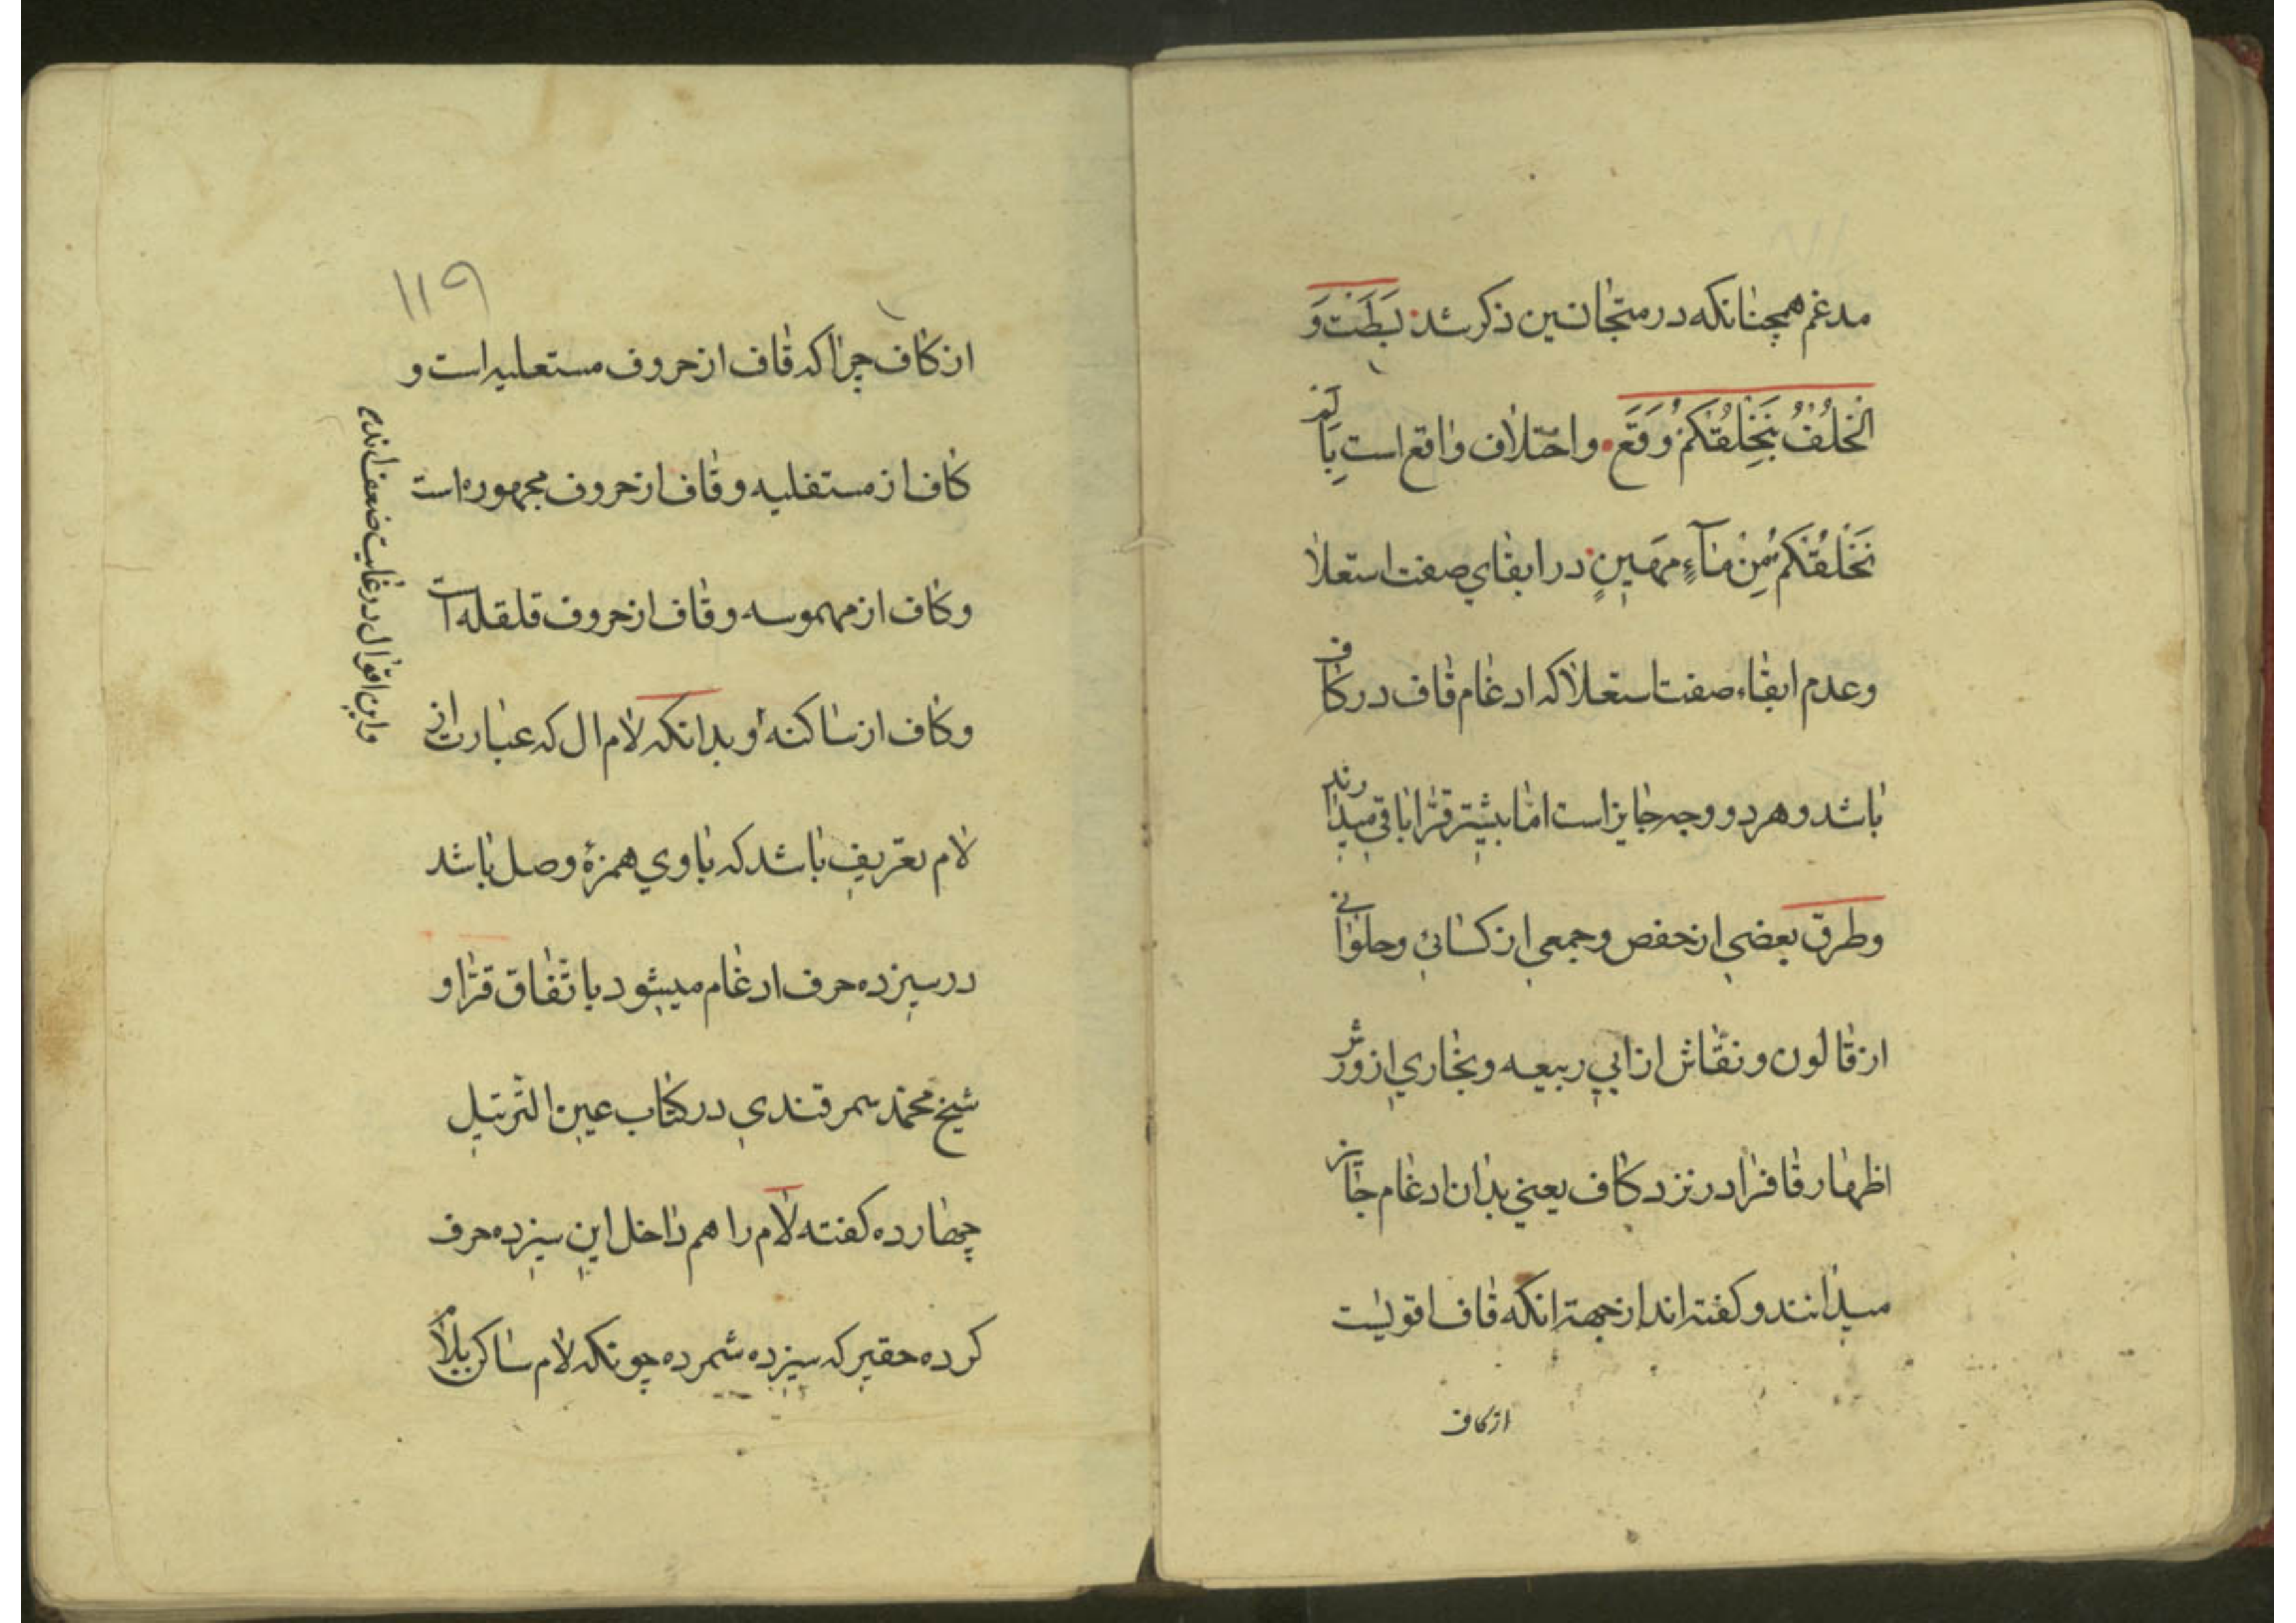 مدغم همچنانکه در متجانسین ذکر شد بَطَنْتَ وَ
الْخُلْفُ بِنَخْلُقْكُمْ وَقَعَ واختلاف واقع است بِاَلَمْ
نَخْلُقْكُمْ مِنْ مَآءٍ مَهِينٍ در ابقای صفت استعلا
وعدم ابقاء صفت استعلا که ادغام قاف در کاف
باشد و هر دو وجه جایز است امّا بیشتر قرّا باقی میدارند
وطرق بعضی از حفص وجمعی از کسائی وحلوانی
از قالون ونقّاش از ابی ربیعه وبخاری از ورش
اظهار قافرا در نزد کاف یعنی بدان ادغام جایز
میدانند و کفته اند از جهة انکه قاف اقویست
از کاف
۱۱۹
از کاف چرا که قاف از حروف مستعلیه است و
کاف از مستفلیه و قاف از حروف مجهوره است
وکاف از مهموسه و قاف از حروف قلقله است
وکاف از ساکنه و بدانکه لام ال که عبارت از
لام تعریف باشد که با وی همزۀ وصل باشد
در سیزده حرف ادغام میشود باتّفاق قرّا و
شیخ محمّد سمرقندی در کتاب عین الترتیل
چهارده کفته لام را هم داخل این سیزده حرف
کرده حقیر که سیزده شمرده چونکه لام ساکن بلام
واین اقوال در غایت ضعف اند